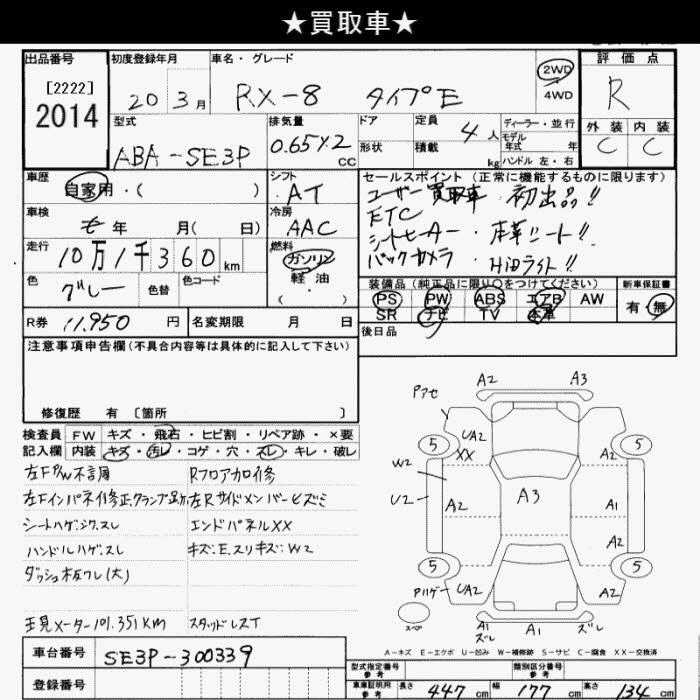 ★買取車★
出品番号
[2222]
2014
初度登録年月
20 3月
車名・グレード
RX-8 タイプE
2WD
4WD
評価点
R
外装 内装
C C
型式
ABA-SE3P
排気量
0.65×2
CC
ドア
形状
定員
4人
積載
kg
ディーラー・並行
モデル
年式 年
ハンドル 左・右
車歴
自家用・( )
シフト
AT
車検
年 月( 日)
冷房
AAC
走行
10万1千360km
燃料
ガソリン
軽油
・
色
グレー
色替
色コード
R券 11,950 円
名変期限 月 日
セールスポイント(正常に機能するものに限ります)
ユーザー買取車・初出品!!
ETC
シートヒーター・本革シート!!
バックカメラ・HiDライト!!
装備品(純正品に限り○をつけてください)
PS PW ABS エアB AW
SR ナビ TV 本革
新車保証書
有・無
後日品
注意事項申告欄(不具合内容等は具体的に記入して下さい)
修復歴 有〔箇所 〕
検査員
記入欄
FW キズ・飛石・ヒビ割・リペア跡・×要
内装 キズ・汚レ・コゲ・穴・スレ・キレ・破レ
左F P/W不調
左Fインパネ修正クランプ跡
シートハゲ.シワ.スレ
ハンドルハゲ.スレ
ダッシュ板ワレ(大)
現メーター101.351KM
Rフロア加修
左Rサイドメンバーヒズミ
エンドパネルXX
キズ:E.スリキズ:W2
スタッドレスT
Pアセ
A2 A3
UA2
XX
5 5
A2
W2
U2
A2 A3 A1
A2
5 5
Pハゲ
UA2 UA2
スペア
A1
ズレ
A1
ズレ
A-キズ E-エクボ U-凹み W-補修跡 S-サビ C-腐食 XX-交換済
車台番号 SE3P-300339
登録番号
型式指定番号
参考
類別区分番号
参考
車庫証明用
参考
長さ 447cm 幅 177cm 高さ 134cm